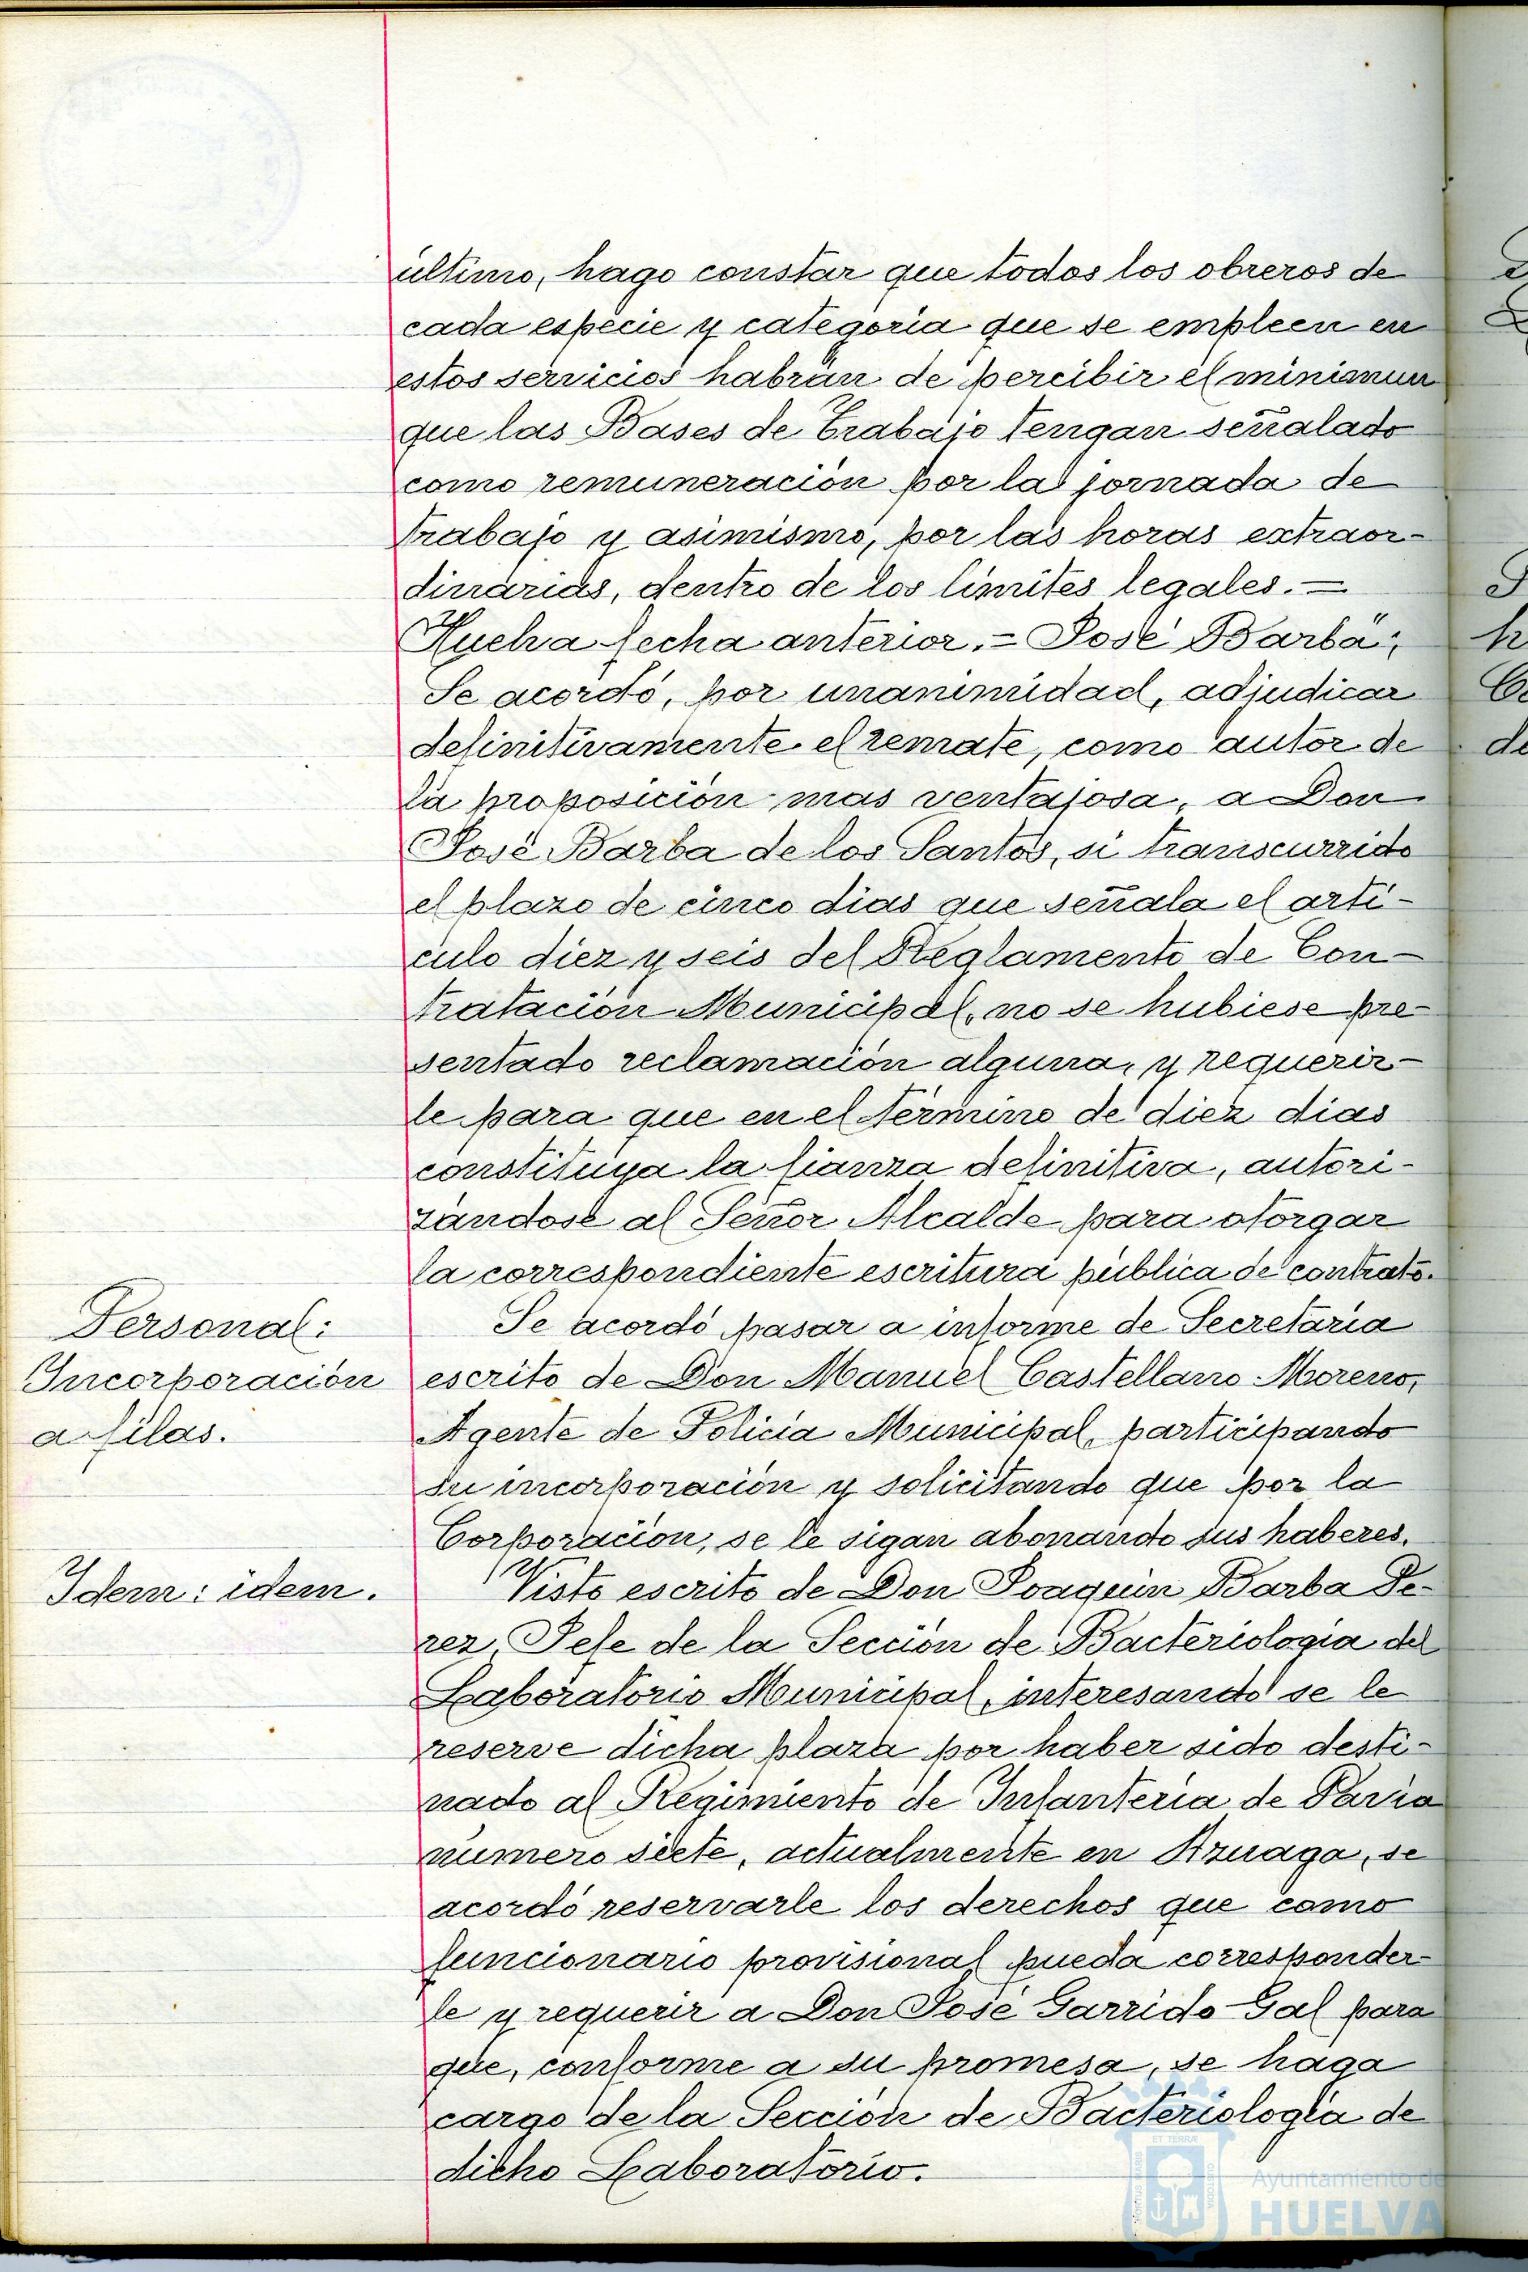 último, hago constar que todos los obreros de
cada especie y categoría que se empleen en
estos servicios habrán de percibir el minimun
que las Bases de Trabajo tengan señalado
como remuneración por la jornada de
trabajo y asimismo, por las horas extraor-
dinarias, dentro de los límites legales. =
Huelva fecha anterior. = José Barba";
Se acordó, por unanimidad, adjudicar
definitivamente el remate, como autor de
la proposición mas ventajosa, a Don
José Barba de los Santos, si transcurrido
el plazo de cinco dias que señala el artí-
culo diez y seis del Reglamento de Con-
tratación Municipal, no se hubiese pre-
sentado reclamación alguna, y requerir-
le para que en el término de diez dias
constituya la fianza definitiva, autori-
zándose al Señor Alcalde para otorgar
la correspondiente escritura pública de contrato.
Personal:
Incorporación
a filas.
Se acordó pasar a informe de Secretaría
escrito de Don Manuel Castellano Moreno,
Agente de Policía Municipal, participando
su incorporación y solicitando que por la
Corporación, se le sigan abonando sus haberes.
Idem: idem.
Visto escrito de Don Joaquín Barba Pe-
rez, Jefe de la Sección de Bacteriología del
Laboratorio Municipal, interesando se le
reserve dicha plaza por haber sido desti-
nado al Regimiento de Infantería de Pavía
número siete, actualmente en Azuaga, se
acordó reservarle los derechos que como
funcionario provisional pueda corresponder-
le y requerir a Don José Garrido Gal para
que, conforme a su promesa, se haga
cargo de la Sección de Bacteriología de
dicho Laboratorio.
Ayuntamiento de
HUELVA